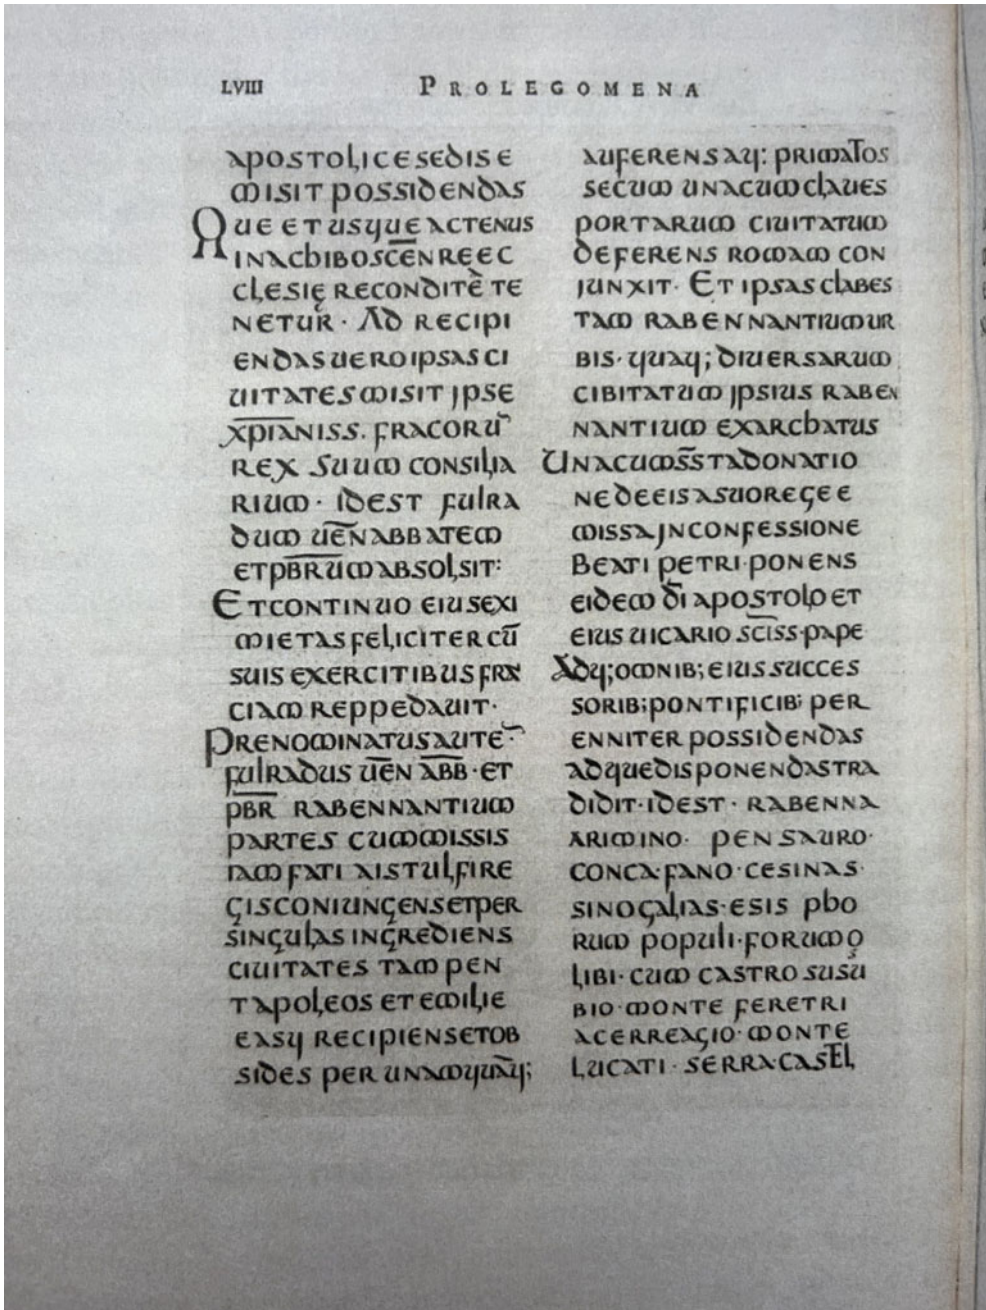 LVIII PROLEGOMENA
APOSTOLICE SEDIS E
MISIT POSSIDENDAS
QUE ET USQUE ACTENUS
IN ARCHIBO SCEN REEC
CLESIĘ RECONDITĒ TE
NETUR · AD RECIPI
ENDAS UERO IPSAS CI
UITATES MISIT IPSE
XPIANISS. FRACORŪ
REX SUUM CONSILIA
RIUM · IDEST FULRA
DUM UEN ABBATEM
ET PBRUM ABSOLSIT:
ET CONTINUO EIUS EXI
MIETAS FELICITER CŪ
SUIS EXERCITIBUS FRA
CIAM REPPEDAUIT ·
PRENOMINATUS AUTE
FULRADUS UEN ABB · ET
PBR RABENNANTIUM
PARTES CUM MISSIS
IAM FATI AISTULFI RE
GIS CONIUNGENS ET PER
SINGULAS INGREDIENS
CIUITATES TAM PEN
TAPOLEOS ET EMILIE
EASQ RECIPIENS ET OB
SIDES PER UNAMQUAQ;
AUFERENS AQ: PRIMATOS
SECUM UNA CUM CLAUES
PORTARUM CIUITATUM
DEFERENS ROMAM CON
IUNXIT · ET IPSAS CLABES
TAM RABENNANTIUM UR
BIS · QUAQ; DIUERSARUM
CIBITATUM IPSIUS RABEN
NANTIUM EXARCHATUS
UNA CUM SS̄TA DONATIO
NE DE EIS A SUO REGE E
MISSA IN CONFESSIONE
BEATI PETRI · PONENS
EIDEM DĪ APOSTOLO ET
EIUS UICARIO SCISS · PAPE
ADQ; OMNIB; EIUS SUCCES
SORIB; PONTIFICIB; PER
ENNITER POSSIDENDAS
ADQUE DISPONENDAS TRA
DIDIT · IDEST · RABENNA
ARIMINO · PENSAURO ·
CONCA · FANO · CESINAS ·
SINOGALIAS · ESIS PHO
RUM POPULI · FORUM O
LIBI · CUM CASTRO SUSU
BIO · MONTE FERETRI
ACERREAGIO · MONTE
LUCATI · SERRA · CASTEL